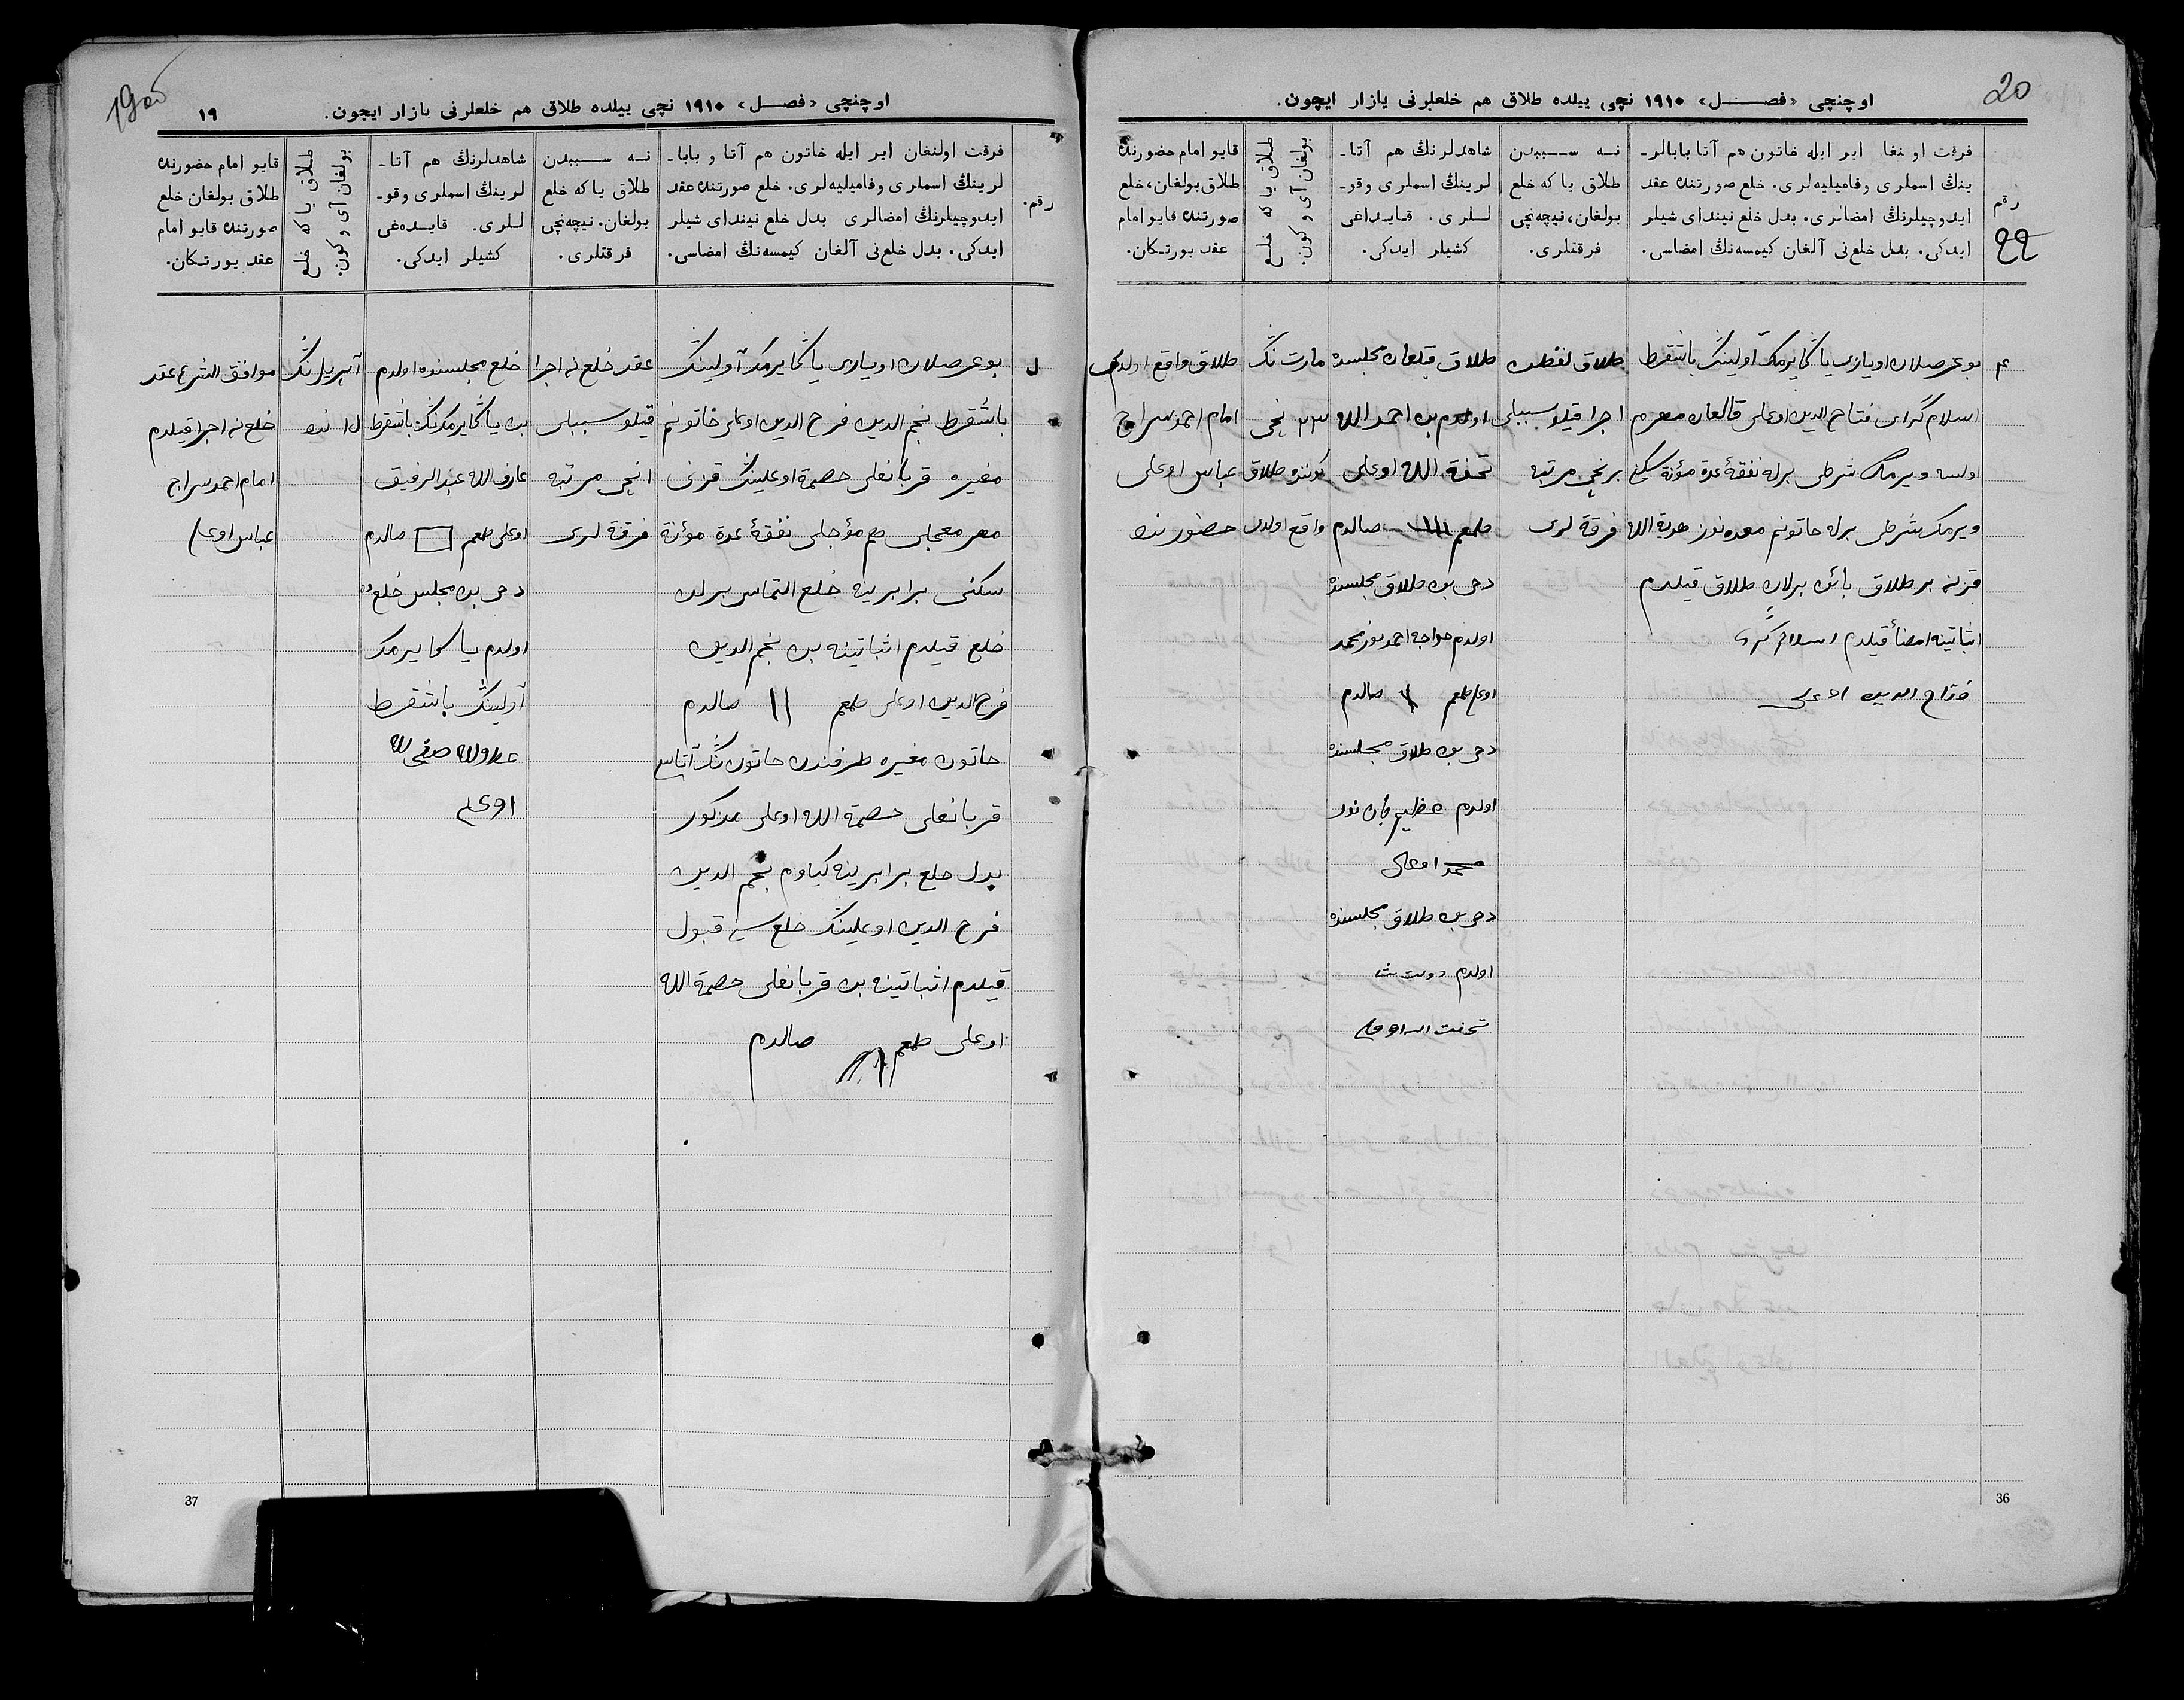 20
اوچنچی «فصل» ۱۹۱۰ نچی ییلده طلاق هم خلعلرنی یازار ایچون.
رقم
فرقت اولنغان ایر ایله خاتون هم آتا بابالر-
ینڭ اسملری وفامیلیه‌لری. خلع صورتنده عقد
ایدوچیلرنڭ امضالری. بدل خلع نیندای شیلر
ایدکی. بدل خلع‌نی آلغان کیمسه‌نڭ امضاسی.
نه سببدن
طلاق یا که خلع
بولغان، نیچه‌نچی
فرقتلری.
شاهدلرنڭ هم آتا-
لرینڭ اسملری وقو-
للری. قایداغی
کشیلر ایدکی.
طلاق یا که خلع
بولغان آی و کون.
قایو امام حضورنده
طلاق بولغان، خلع
صورتنده قایو امام
عقد یورتکان.
اسلام کرای فتاح الدین اوغلی قالغان مهرم
اولسه ویرمک شرطی برله نفقهٔ عدة مؤنة سکنی
ویرمک شرطی برله خاتونم
قزینه بر طلاق بائن برلان طلاق قیلدم
اثباتینه امضأ قیلدم اسلام کرای
فتاح الدین اوغلی
طلاق لفظن
اجرا قیلو سببلی
برنچی مرتبه
فرقة لری
طلاق قیلغان مجلسده
اولدم بن احمد الله
تحفة الله اوغلی
طمغم صالدم
دخی بن طلاق مجلسنده
اولدم خواجه احمد نور محمد
اوغلی طمغم صالدم
دخی بن طلاق مجلسنده
اولدم عظیم جان نور
محمد اوغلی
دخی بن طلاق مجلسنده
اولدم دولت شا
مارت نڭ
۲۳ نچی
کوننده طلاق
واقع اولدی
طلاق واقع اولدی
امام احمد سراج
عباس اوغلی
حضورنده
36
اوچنچی «فصل» ۱۹۱۰ نچی ییلده طلاق هم خلعلرنی یازار ایچون.
۱۹
رقم.
فرقت اولنغان ایر ایله خاتون هم آتا و بابا-
لرینڭ اسملری وفامیلیه‌لری. خلع صورتنده عقد
ایدوچیلرنڭ امضالری بدل خلع نیندای شیلر
ایدکی. بدل خلع‌نی آلغان کیمسه‌نڭ امضاسی.
نه سببدن
طلاق یا که خلع
بولغان. نیچه‌نچی
فرقتلری.
شاهدلرنڭ هم آتا-
لرینڭ اسملری وقو-
للری. قایده‌غی
کشیلر ایدکی.
طلاق یا که خلع
بولغان آی و کون.
قایو امام حضورنده
طلاق بولغان خلع
صورتنده قایو امام
عقد یورتکان.
باشقرط نجم الدین فرح الدین اوغلی خاتونم
مغیره قربانغلی حصمة اوغلینڭ قزنی
مهر معجلی هم مؤجلی نفقهٔ عدة مؤنة
سکنی برابرینه خلع التماس برلن
خلع قیلدم اثباتینه بن نجم الدین
فرح الدین اوغلی طمغم صالدم
خاتون مغیره طرفندن خاتون نڭ آتاسی
قربانغلی حصمة الله اوغلی مذکور
بدل خلع برابرینه کیاوم نجم الدین
فرح الدین اوغلینڭ خلع سی قبول
قیلدم اثباتینه بن قربانغلی حصمة الله
اوغلی طمغم صالدم
عقد خلع نی اجرا
قیلو سببلی
۱نچی مرتبه
فرقة لری
خلع مجلسنده اولدم
عارف الله عبد الرفیق
اوغلی طمغم صالدم
دخی بن مجلس خلع ده
اولدم
آولینڭ باشقرط
اوغلی
آپریل نڭ
۱۵ نده
موافق الشرع عقد
خلع نی اجرا قیلدم
امام احمد سراج
عباس اوغلی
37